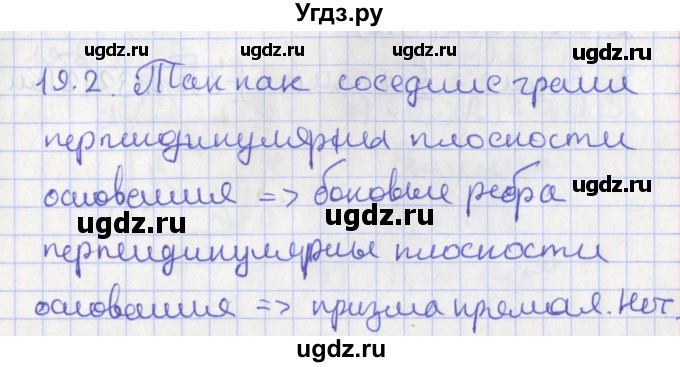 Угдз.ру
ugdz.ru ugdz.ru ugdz.ru
19.2. Так как соседние грани
перпендикулярны плоскости
ugdz.ru ugdz.ru
основания => боковые ребра
ugdz.ru ugdz.ru ugdz.ru
перпендикулярны плоскости
ugdz.ru ugdz.ru
основания => призма прямая. Нет.
ugdz.ru